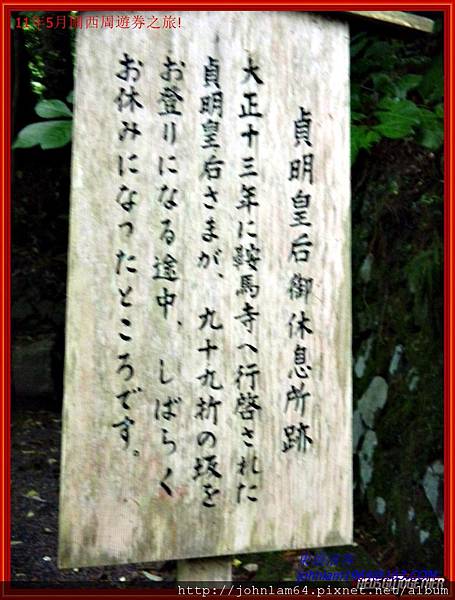 11年5月關西周遊券之旅!
貞明皇后御休息所跡
大正十三年に鞍馬寺へ行啓された
貞明皇后さまが、九十九折の坂を
お登りになる途中、しばらく
お休みになったところです。
http://johnlam64.pixnet.net/album